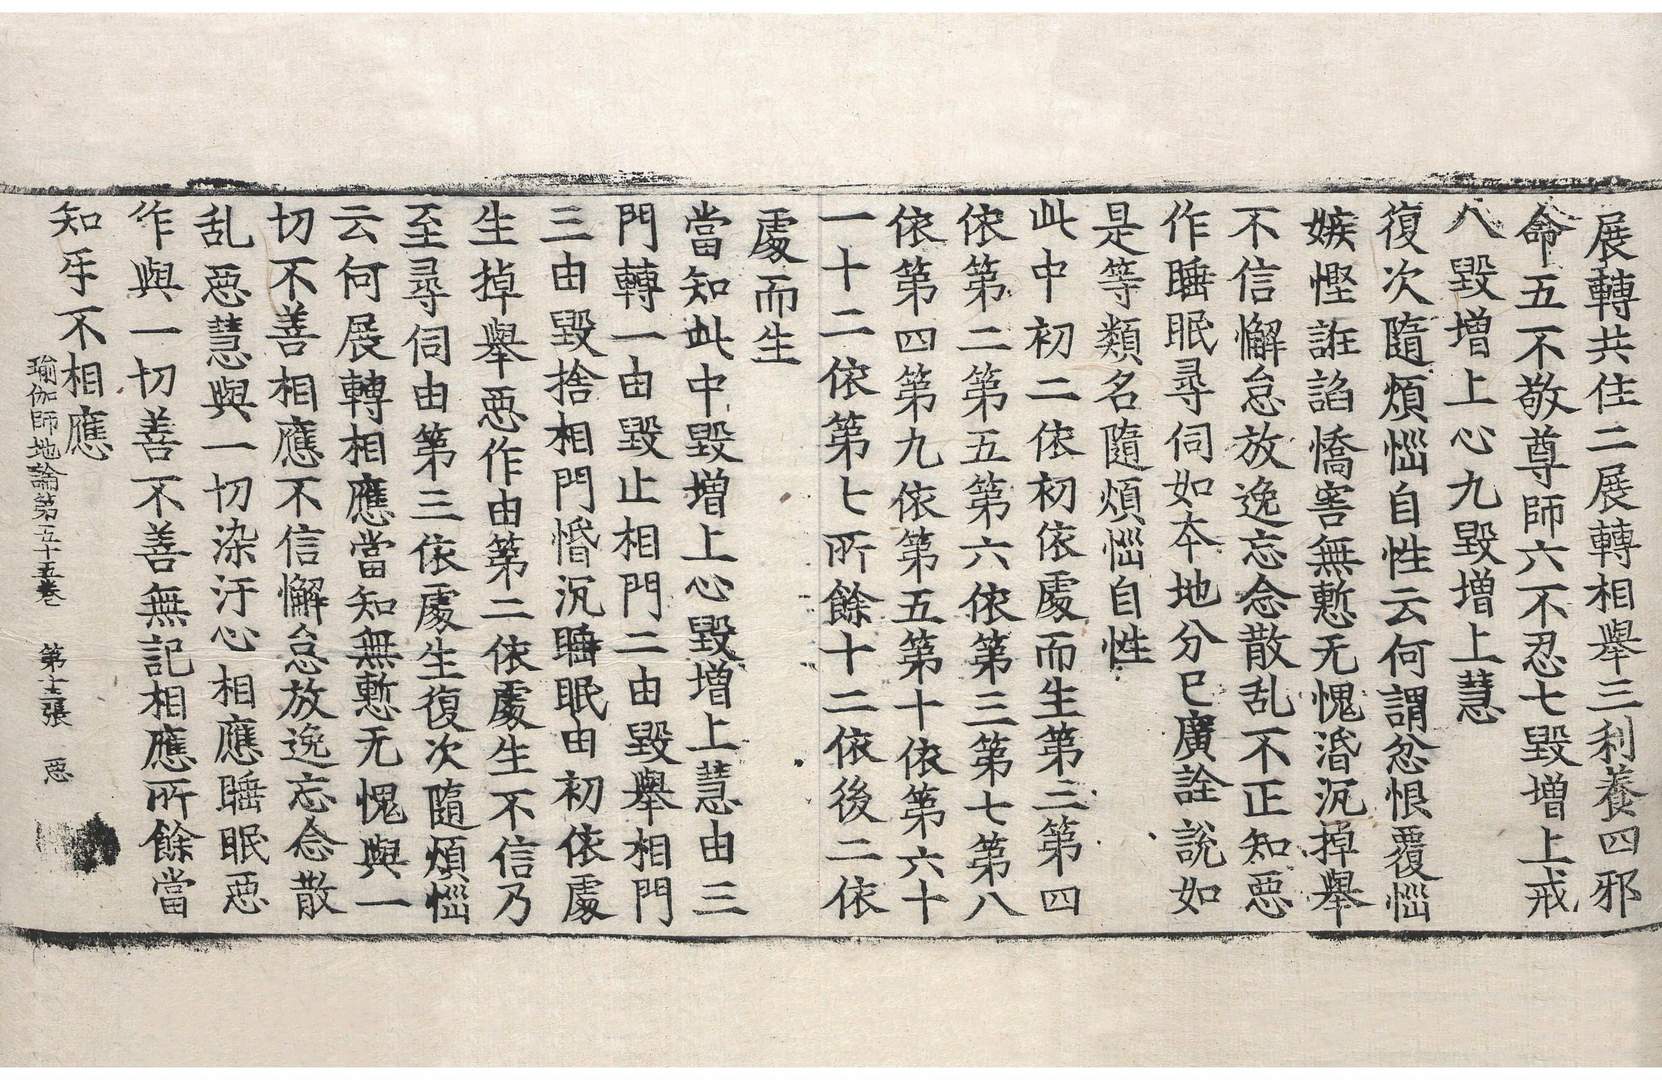 展轉共住二展轉相舉三利養四邪
命五不敬尊師六不忍七毀增上戒
八毀增上心九毀增上慧
復次隨煩惱自性云何謂忿恨覆惱
嫉慳誑諂憍害無慙无愧惽沉掉舉
不信懈怠放逸忘念散乱不正知惡
作睡眠尋伺如本地分已廣詮說如
是等類名隨煩惱自性
此中初二依初依處而生第三第四
依第二第五第六依第三第七第八
依第四第九依第五第十依第六十
一十二依第七所餘十二依後二依
處而生
當知此中毀增上心毀增上慧由三
門轉一由毀止相門二由毀舉相門
三由毀捨相門惽沉睡眠由初依處
生掉舉惡作由第二依處生不信乃
至尋伺由第三依處生復次隨煩惱
云何展轉相應當知無慙无愧與一
切不善相應不信懈怠放逸忘念散
乱惡慧與一切染汙心相應睡眠惡
作與一切善不善無記相應所餘當
知㸦不相應
瑜伽師地論第五十五卷 第十二張 惡